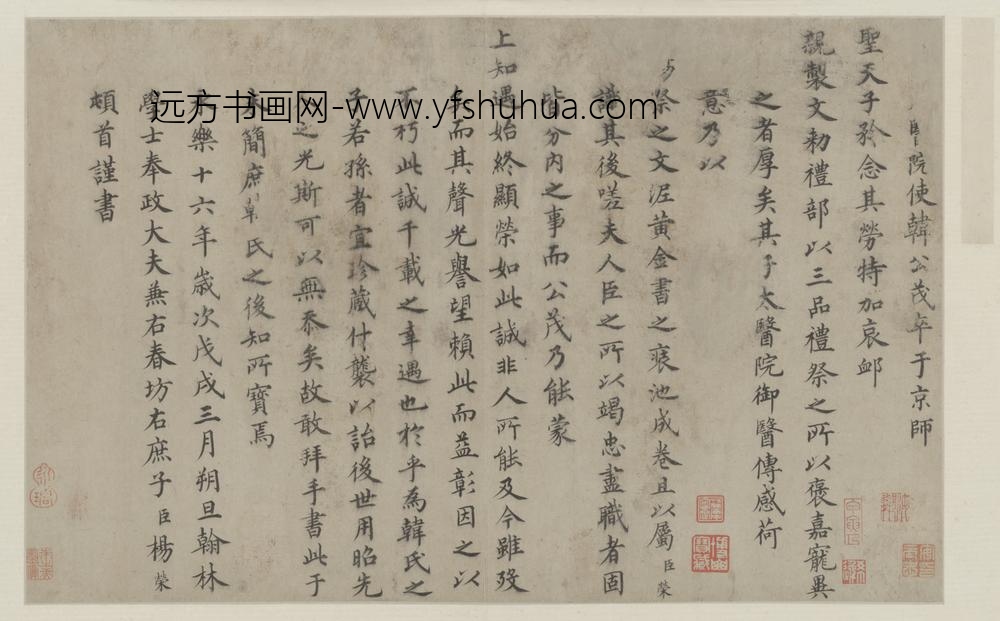 醫院使韓公茂卒于京師
聖天子矜念其勞特加哀卹
親製文勑禮部以三品禮祭之所以褒嘉寵異
之者厚矣其子太醫院御醫傳感荷
意乃以
祭之文泥黄金書之裱池成卷且以屬臣榮
識其後嗟夫人臣之所以竭忠盡職者固
皆分内之事而公茂乃能蒙
上知遇始終顯榮如此誠非人所能及今雖歿
而其聲光譽望賴此而益彰因之以
不朽此誠千載之幸遇也於乎為韓氏之
子若孫者宜珍藏什襲以詒後世用昭先
之光斯可以無忝矣故敢拜手書此于
簡庶韓氏之後知所寶焉
永樂十六年歲次戊戌三月朔旦翰林
學士奉政大夫兼右春坊右庶子臣楊榮
頓首謹書
远方书画网-www.yfshuhua.com